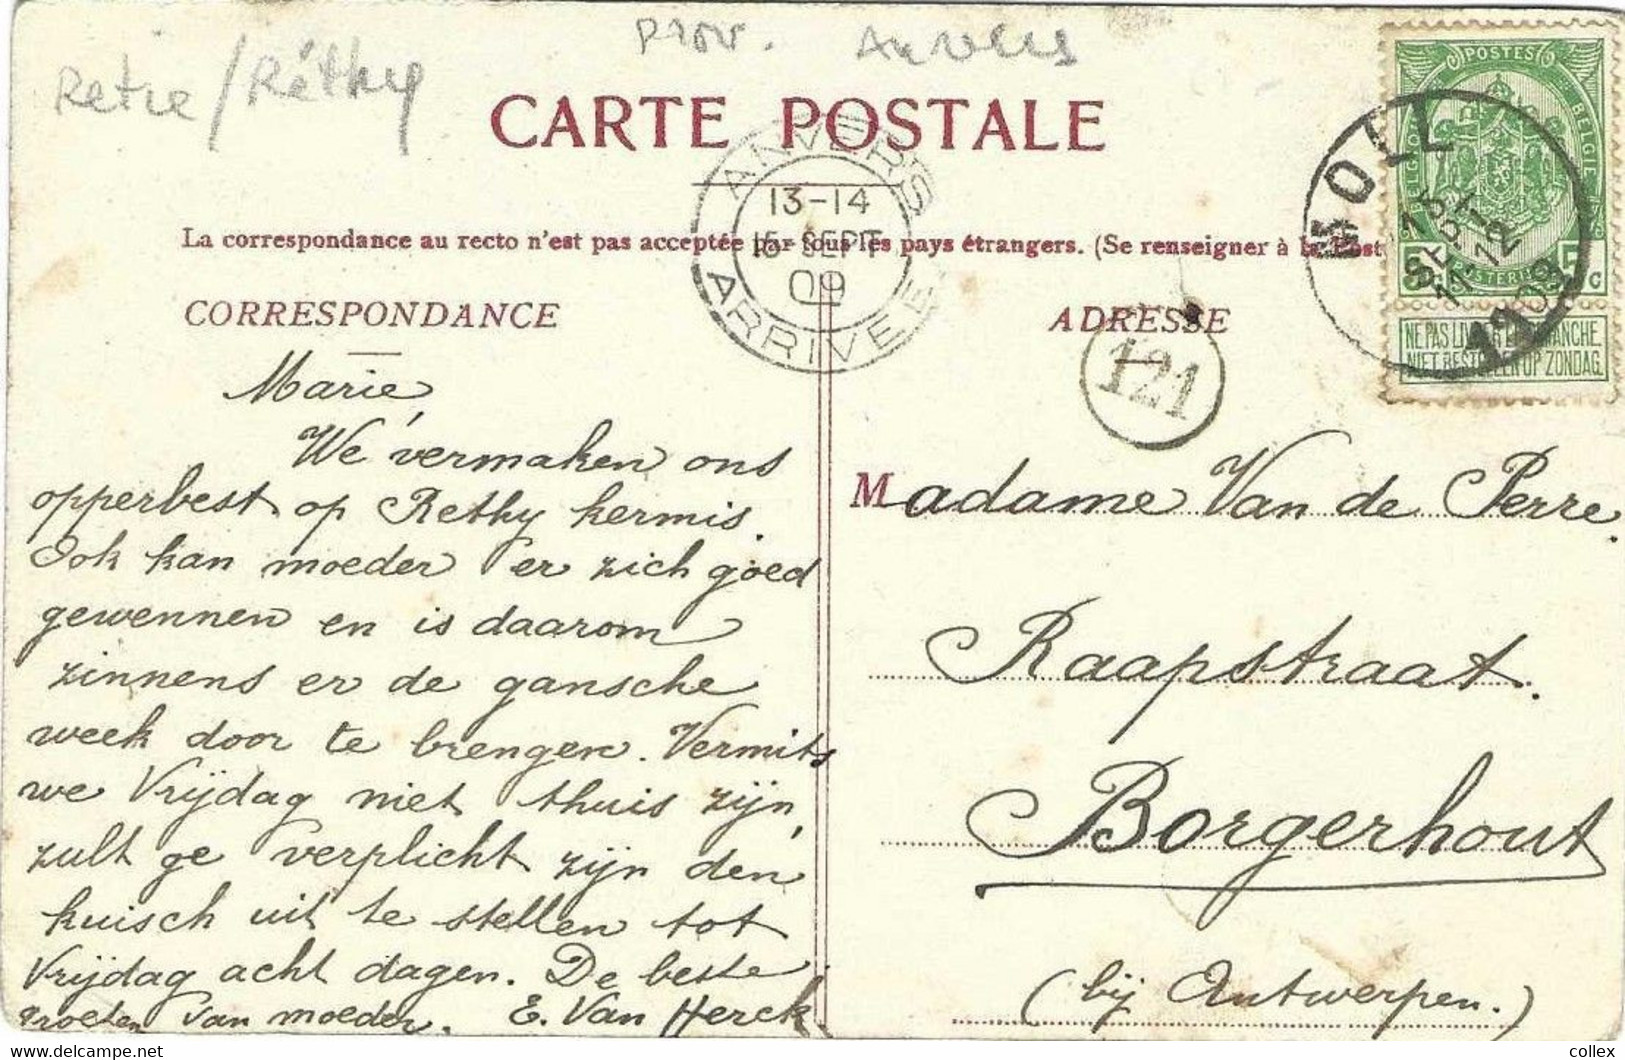 Retie / Réthy
prov. Anvers
CARTE POSTALE
ANVERS
13-14
15 SEPT
09
ARRIVEE
La correspondance au recto n'est pas acceptée par tous les pays étrangers. (Se renseigner à la Post
POSTES
BELGIE
BELGIQUE
5 C
NE PAS LIVRER LE DIMANCHE
NIET BESTELLEN OP ZONDAG
MOLL
15
SEPT
11-12
1909
CORRESPONDANCE
ADRESSE
121
Marie,
We vermaken ons
opperbest op Rethy kermis.
Ook kan moeder er zich goed
gewennen en is daarom
zinnens er de gansche
week door te brengen. Vermits
we Vrijdag niet thuis zijn,
zult ge verplicht zijn den
kuisch uit te stellen tot
Vrijdag acht dagen. De beste
groeten van moeder. E. Van Herck
Madame Van de Perre.
Raapstraat.
Borgerhout
(bij Antwerpen.)
delcampe.net
collex